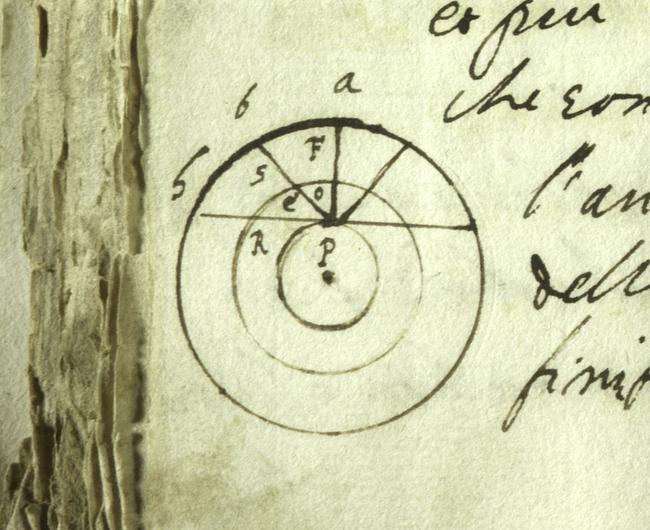 et piu
che con
l'an
dell
finit
a
b
F
S
o
e
R
P